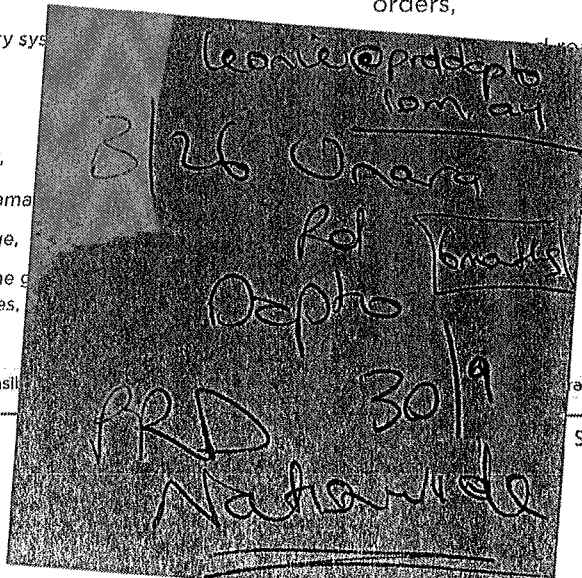 orders,
ry sys
leonie@prddapto
com au
B 26 Unara
Rd
6 months
Dapto
PRD 30/9
Nationwide